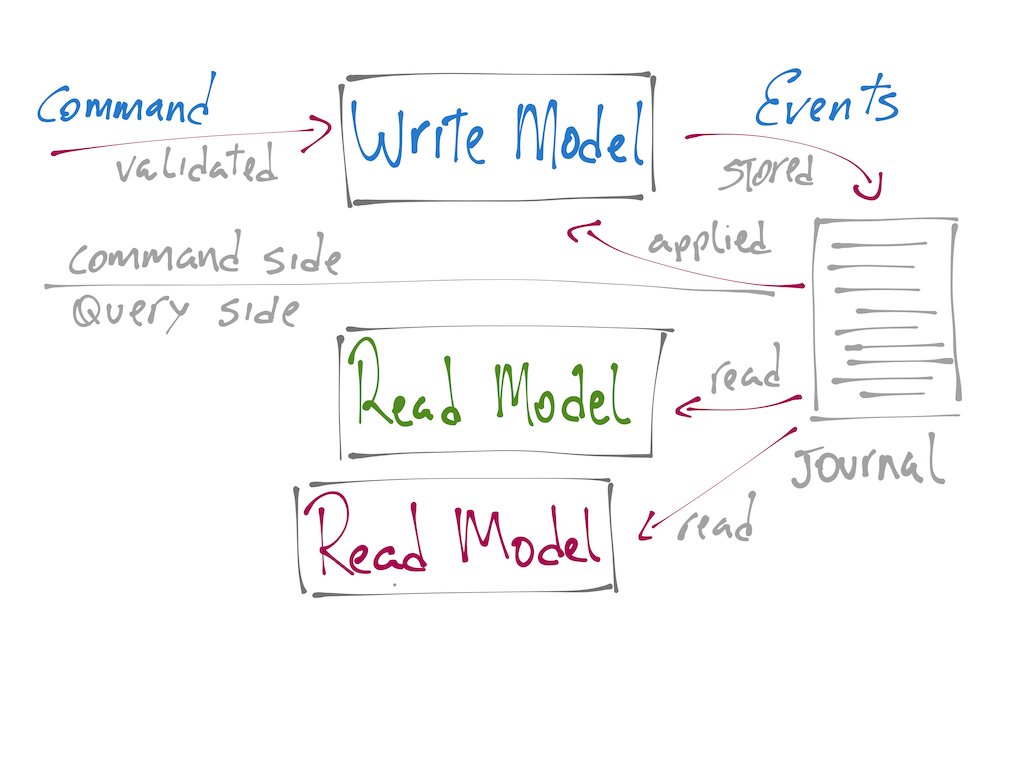 Command
validated
Write Model
Events
stored
applied
command side
Query side
Read Model
read
Journal
Read Model
read